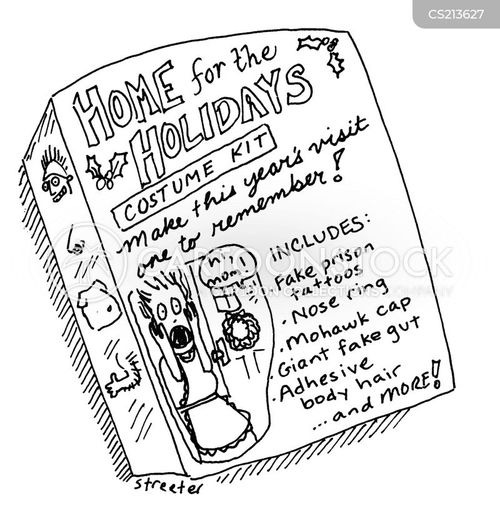 CS213627
HOME for the
HOLIDAYS
COSTUME KIT
Make this year's visit
one to remember!
INCLUDES:
Fake prison
tattoos
• Nose ring
• Mohawk cap
• Giant fake gut
• Adhesive
body hair
...and MORE!
Hi
mom!
CARTOONSTOCK
streeter